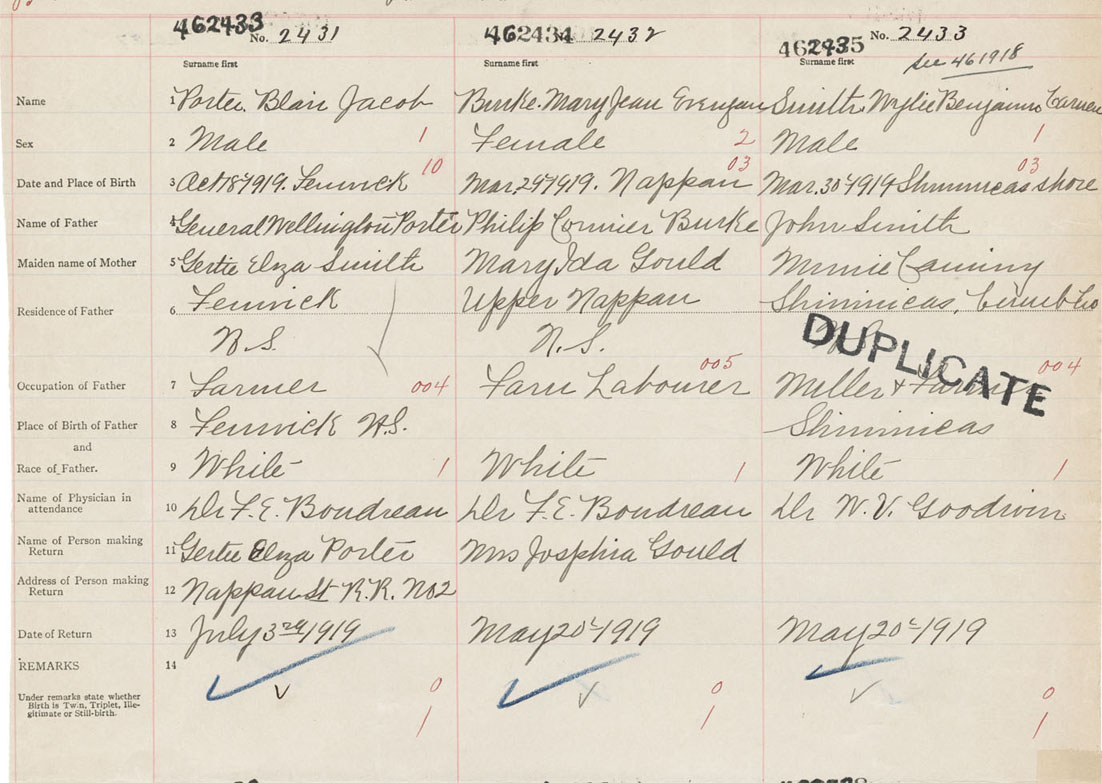 462433 No. 2431 462434 No. 2432 462435 No. 2433
Surname first Surname first Surname first see 461918
Name 1 Porter. Blair Jacob Burke. Mary Jean Smith. Wylie Benjamin Carmen
Sex 2 Male 1 Female 2 Male 1
10 03 03
Date and Place of Birth 3 Oct 18th 1919. Fenwick Mar. 29th 1919. Nappan Mar. 30th 1919 Shinimicas shore
Name of Father 4 General Wellington Porter Philip Cormier Burke John Smith
Maiden name of Mother 5 Gertie Elza Smith Mary Ida Gould Minnie
Residence of Father 6 Fenwick Upper Nappan Shinimicas, Cumb Co
N.S. N.S.
DUPLICATE
Occupation of Father 7 Farmer 004 Farm Labourer 005 Miller & Farmer 004
Place of Birth of Father 8 Fenwick N.S. Shinimicas
and
Race of Father. 9 White 1 White 1 White 1
Name of Physician in
attendance 10 Dr F. E. Boudreau Dr F. E. Boudreau Dr W. V. Goodwin
Name of Person making
Return 11 Gertie Elza Porter Mrs Josphia Gould
Address of Person making
Return 12 Nappan St R.R. No2
Date of Return 13 July 3rd 1919 May 20th 1919 May 20th 1919
REMARKS 14
Under remarks state whether
Birth is Twin, Triplet, Ille-
gitimate or Still-birth.
0 0 0
1 1 1